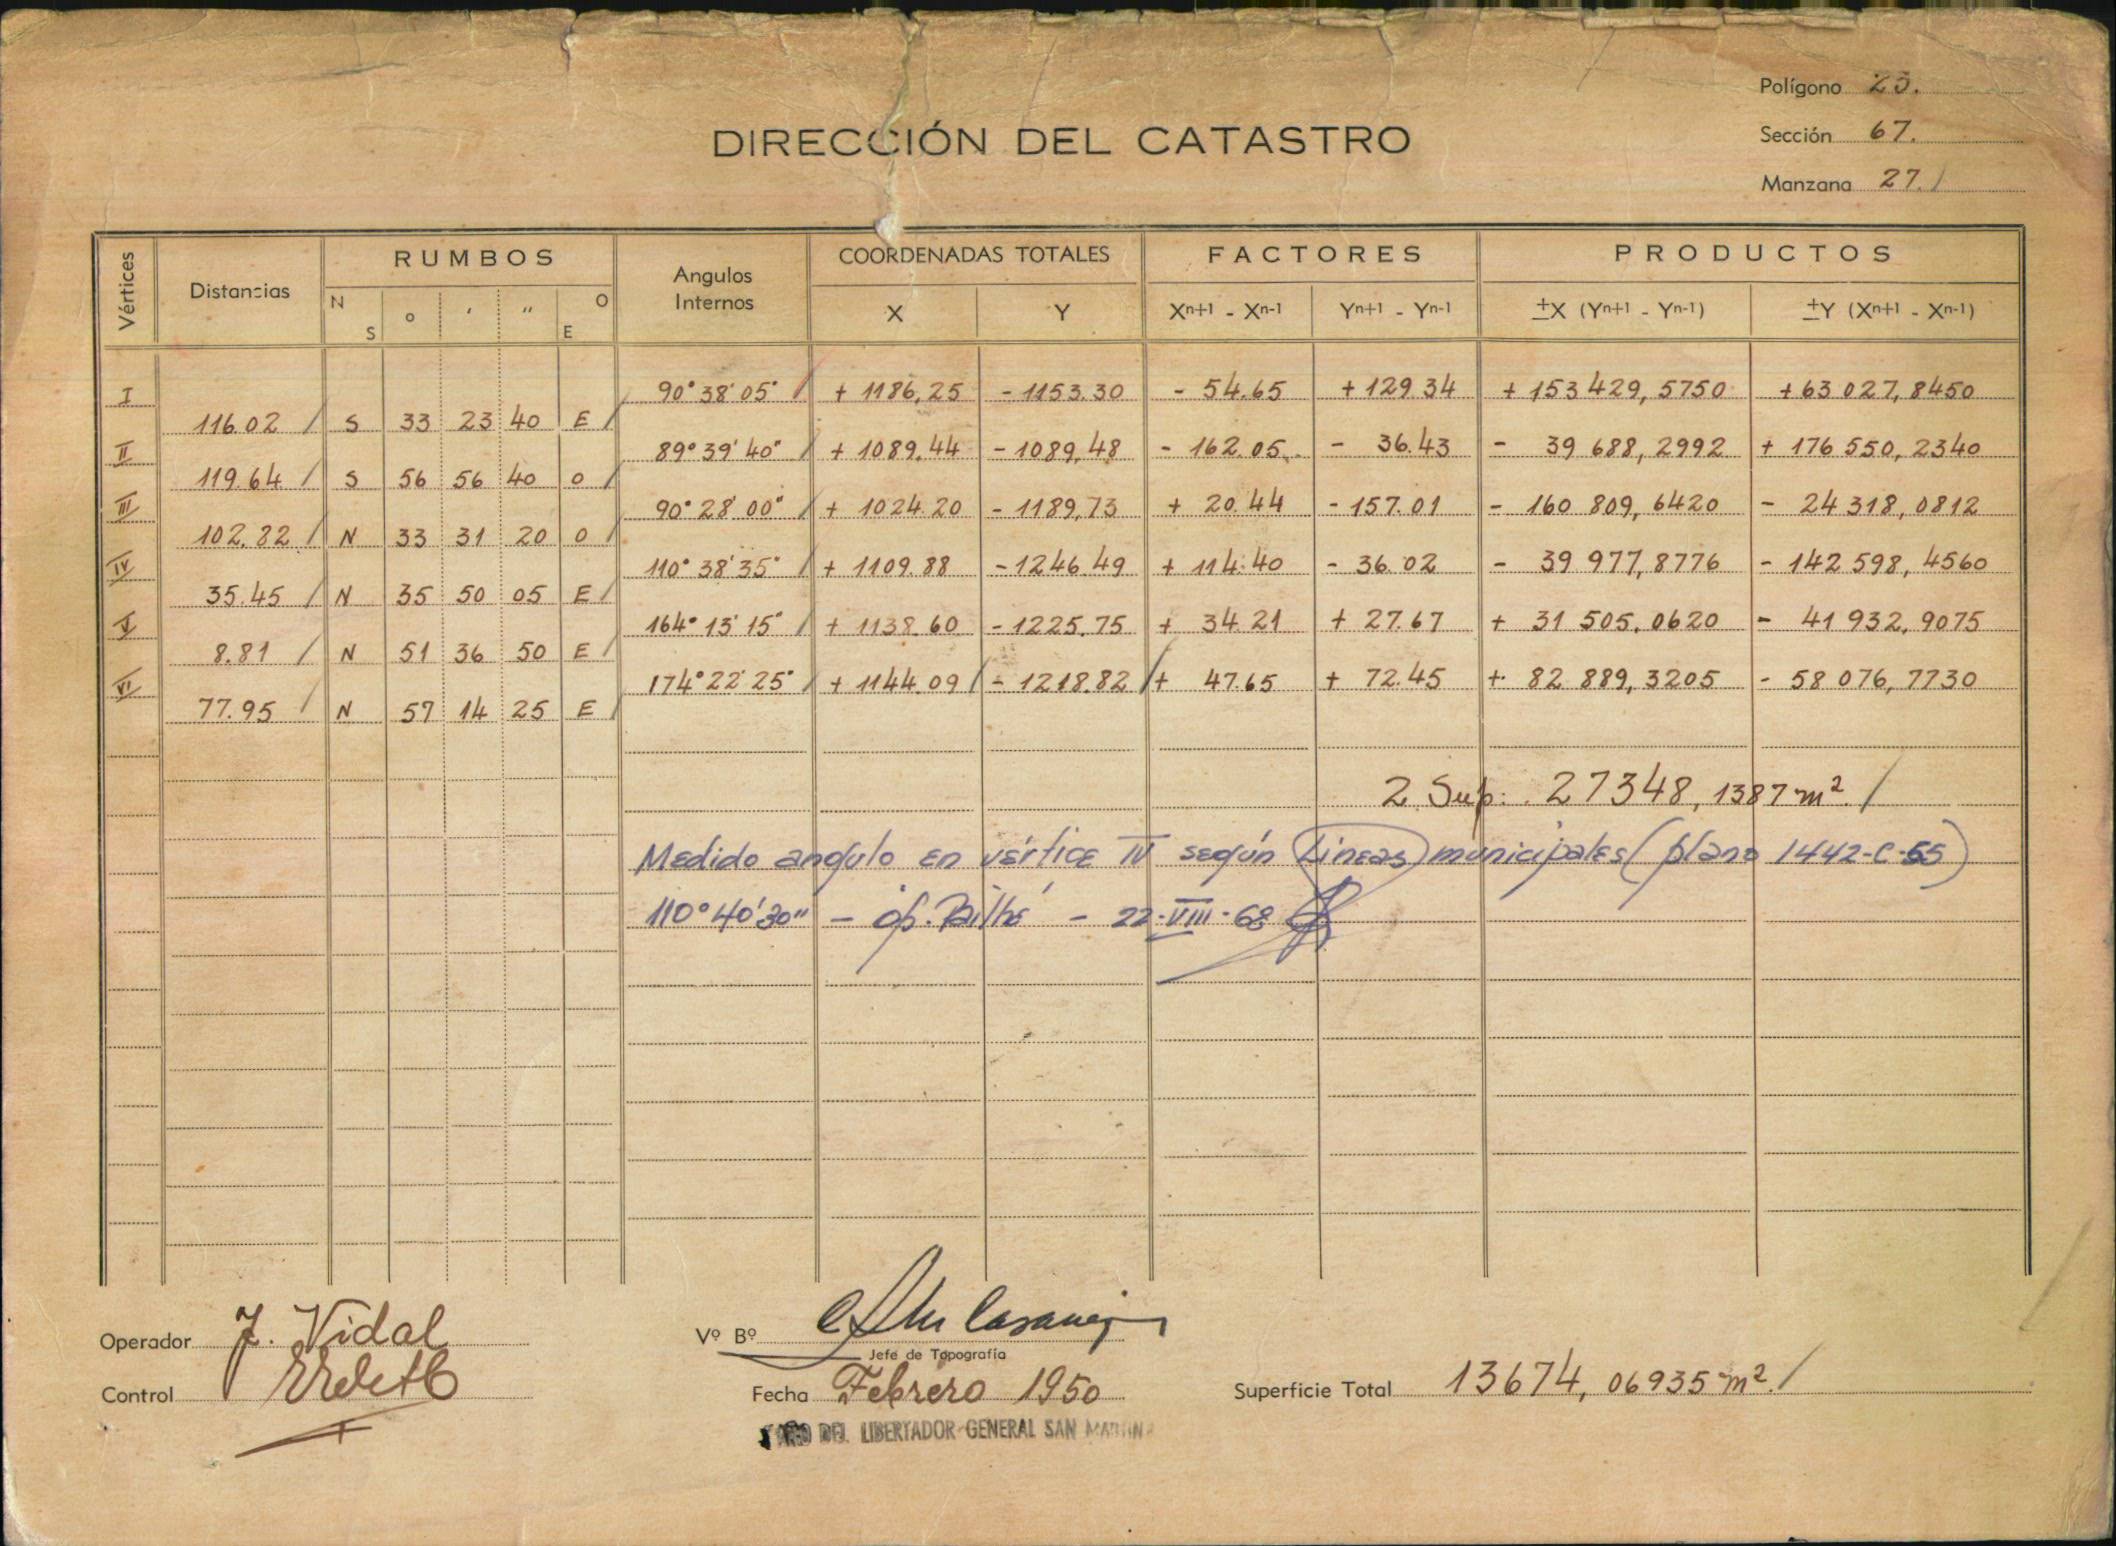 Polígono 23.
DIRECCIÓN DEL CATASTRO
Sección 67.
Manzana 27.
Vértices Distancias RUMBOS Angulos Internos COORDENADAS TOTALES FACTORES PRODUCTOS
N S o ' " O E X Y Xn+1 - Xn-1 Yn+1 - Yn-1 ±X (Yn+1 - Yn-1) ±Y (Xn+1 - Xn-1)
I 90° 38' 05" + 1186,25 - 1153.30 - 54.65 + 129.34 + 153 429, 5750 + 63 027, 8450
116.02 S 33 23 40 E
II 89° 39' 40" + 1089.44 - 1089,48 - 162.05 - 36.43 - 39 688, 2992 + 176 550, 2340
119.64 S 56 56 40 O
III 90° 28' 00" + 1024.20 - 1189,73 + 20.44 - 157.01 - 160 809, 6420 - 24 318, 0812
102.82 N 33 31 20 O
IV 110° 38' 35" + 1109.88 - 1246.49 + 114.40 - 36.02 - 39 977, 8776 - 142 598, 4560
35.45 N 35 50 05 E
V 164° 13' 15" + 1138.60 - 1225.75 + 34.21 + 27.67 + 31 505.0620 - 41 932, 9075
8.81 N 51 36 50 E
VI 174° 22' 25" + 1144.09 - 1218.82 + 47.65 + 72.45 + 82 889, 3205 - 58 076, 7730
77.95 N 57 14 25 E
2 Sup: 27348, 1387 m²
Medido angulo en vértice IV según Lineas municipales (plano 1442-C-65)
110° 40' 30" - op. - 22-VIII-68
Operador J. Vidal Vº Bº
Jefe de Topografía
Control Fecha Febrero 1950 Superficie Total 13674, 06935 m²
AÑO DEL LIBERTADOR GENERAL SAN MARTIN